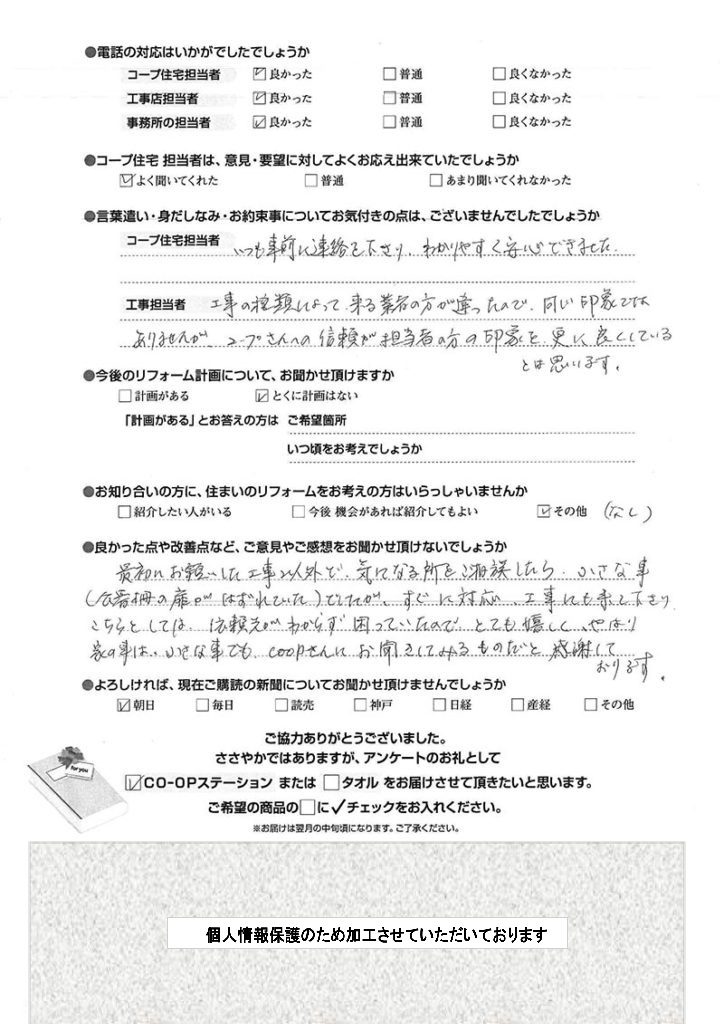 ●電話の対応はいかがでしたでしょうか
コープ住宅担当者 ☑良かった □普通 □良くなかった
工事店担当者 ☑良かった □普通 □良くなかった
事務所の担当者 ☑良かった □普通 □良くなかった
●コープ住宅 担当者は、意見・要望に対してよくお応え出来ていたでしょうか
☑よく聞いてくれた □普通 □あまり聞いてくれなかった
●言葉遣い・身だしなみ・お約束事についてお気付きの点は、ございませんでしたでしょうか
コープ住宅担当者 いつも事前に連絡を下さり、わかりやすく安心できました.
工事担当者 工事の種類によって、来る業者の方が違ったので、同じ印象では
ありませんが、コープさんへの信頼が担当者の方の印象を、更に良くしている
とは思います。
●今後のリフォーム計画について、お聞かせ頂けますか
□計画がある ☑とくに計画はない
「計画がある」とお答えの方は ご希望箇所
いつ頃をお考えでしょうか
●お知り合いの方に、住まいのリフォームをお考えの方はいらっしゃいませんか
□紹介したい人がいる □今後 機会があれば紹介してもよい ☑その他 (なし)
●良かった点や改善点など、ご意見やご感想をお聞かせ頂けないでしょうか
最初にお願いした工事以外で、気になる所をご相談したら、小さな事
(の扉がはずれていた)でしたが、すぐに対応、工事にも来て下さり
こちらとしては、依頼先がわからず困っていたので、とても嬉しく、やはり
家の事は、小さな事でも、coopさんにお聞きしてみるものだと感謝して
おります。
●よろしければ、現在ご購読の新聞についてお聞かせ頂けませんでしょうか
☑朝日 □毎日 □読売 □神戸 □日経 □産経 □その他
ご協力ありがとうございました。
ささやかではありますが、アンケートのお礼として
for you
☑CO-OPステーション または □タオル をお届けさせて頂きたいと思います。
ご希望の商品の□に✓チェックをお入れください。
※お届けは翌月の中旬頃になります。ご了承ください。
個人情報保護のため加工させていただいております